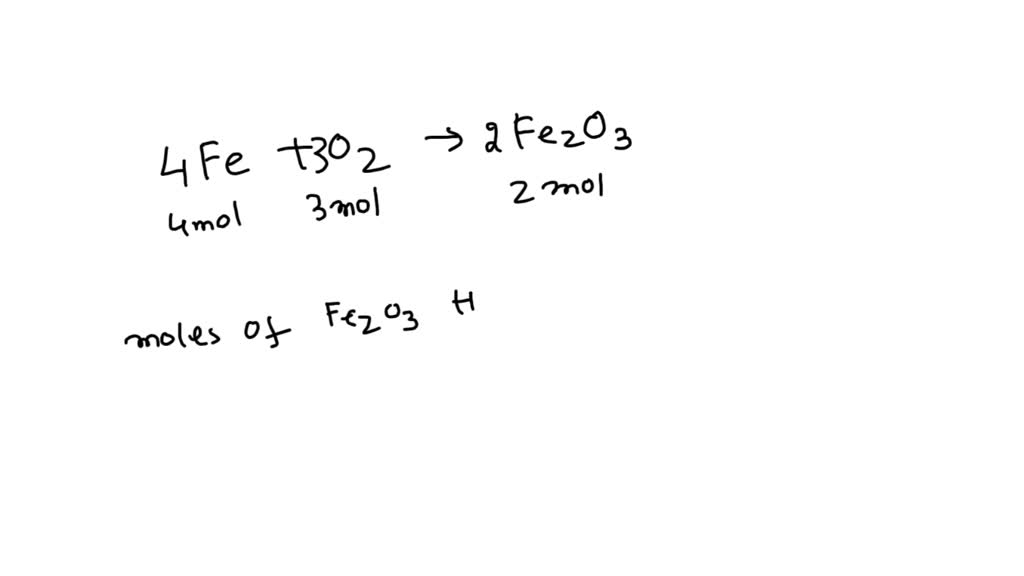 4Fe +3O2 → 2Fe2O3
4mol 3mol 2mol
moles of Fe2O3 H